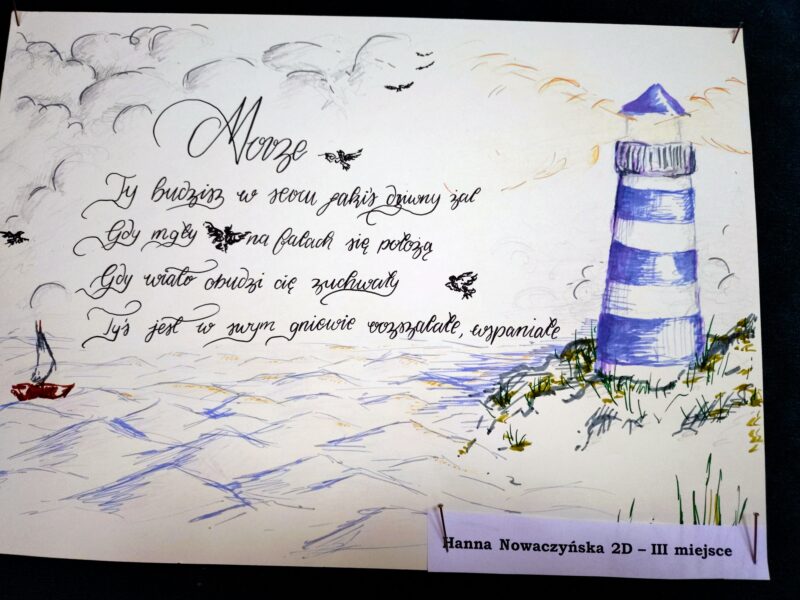 Morze
Ty budzisz w sercu jakiś dziwny żal
Gdy mgły na falach się położą
Gdy wiatr obudzi cię zuchwały
Tyś jest w swym gniewie rozszalałe, wspaniałe
Hanna Nowaczyńska 2D – III miejsce